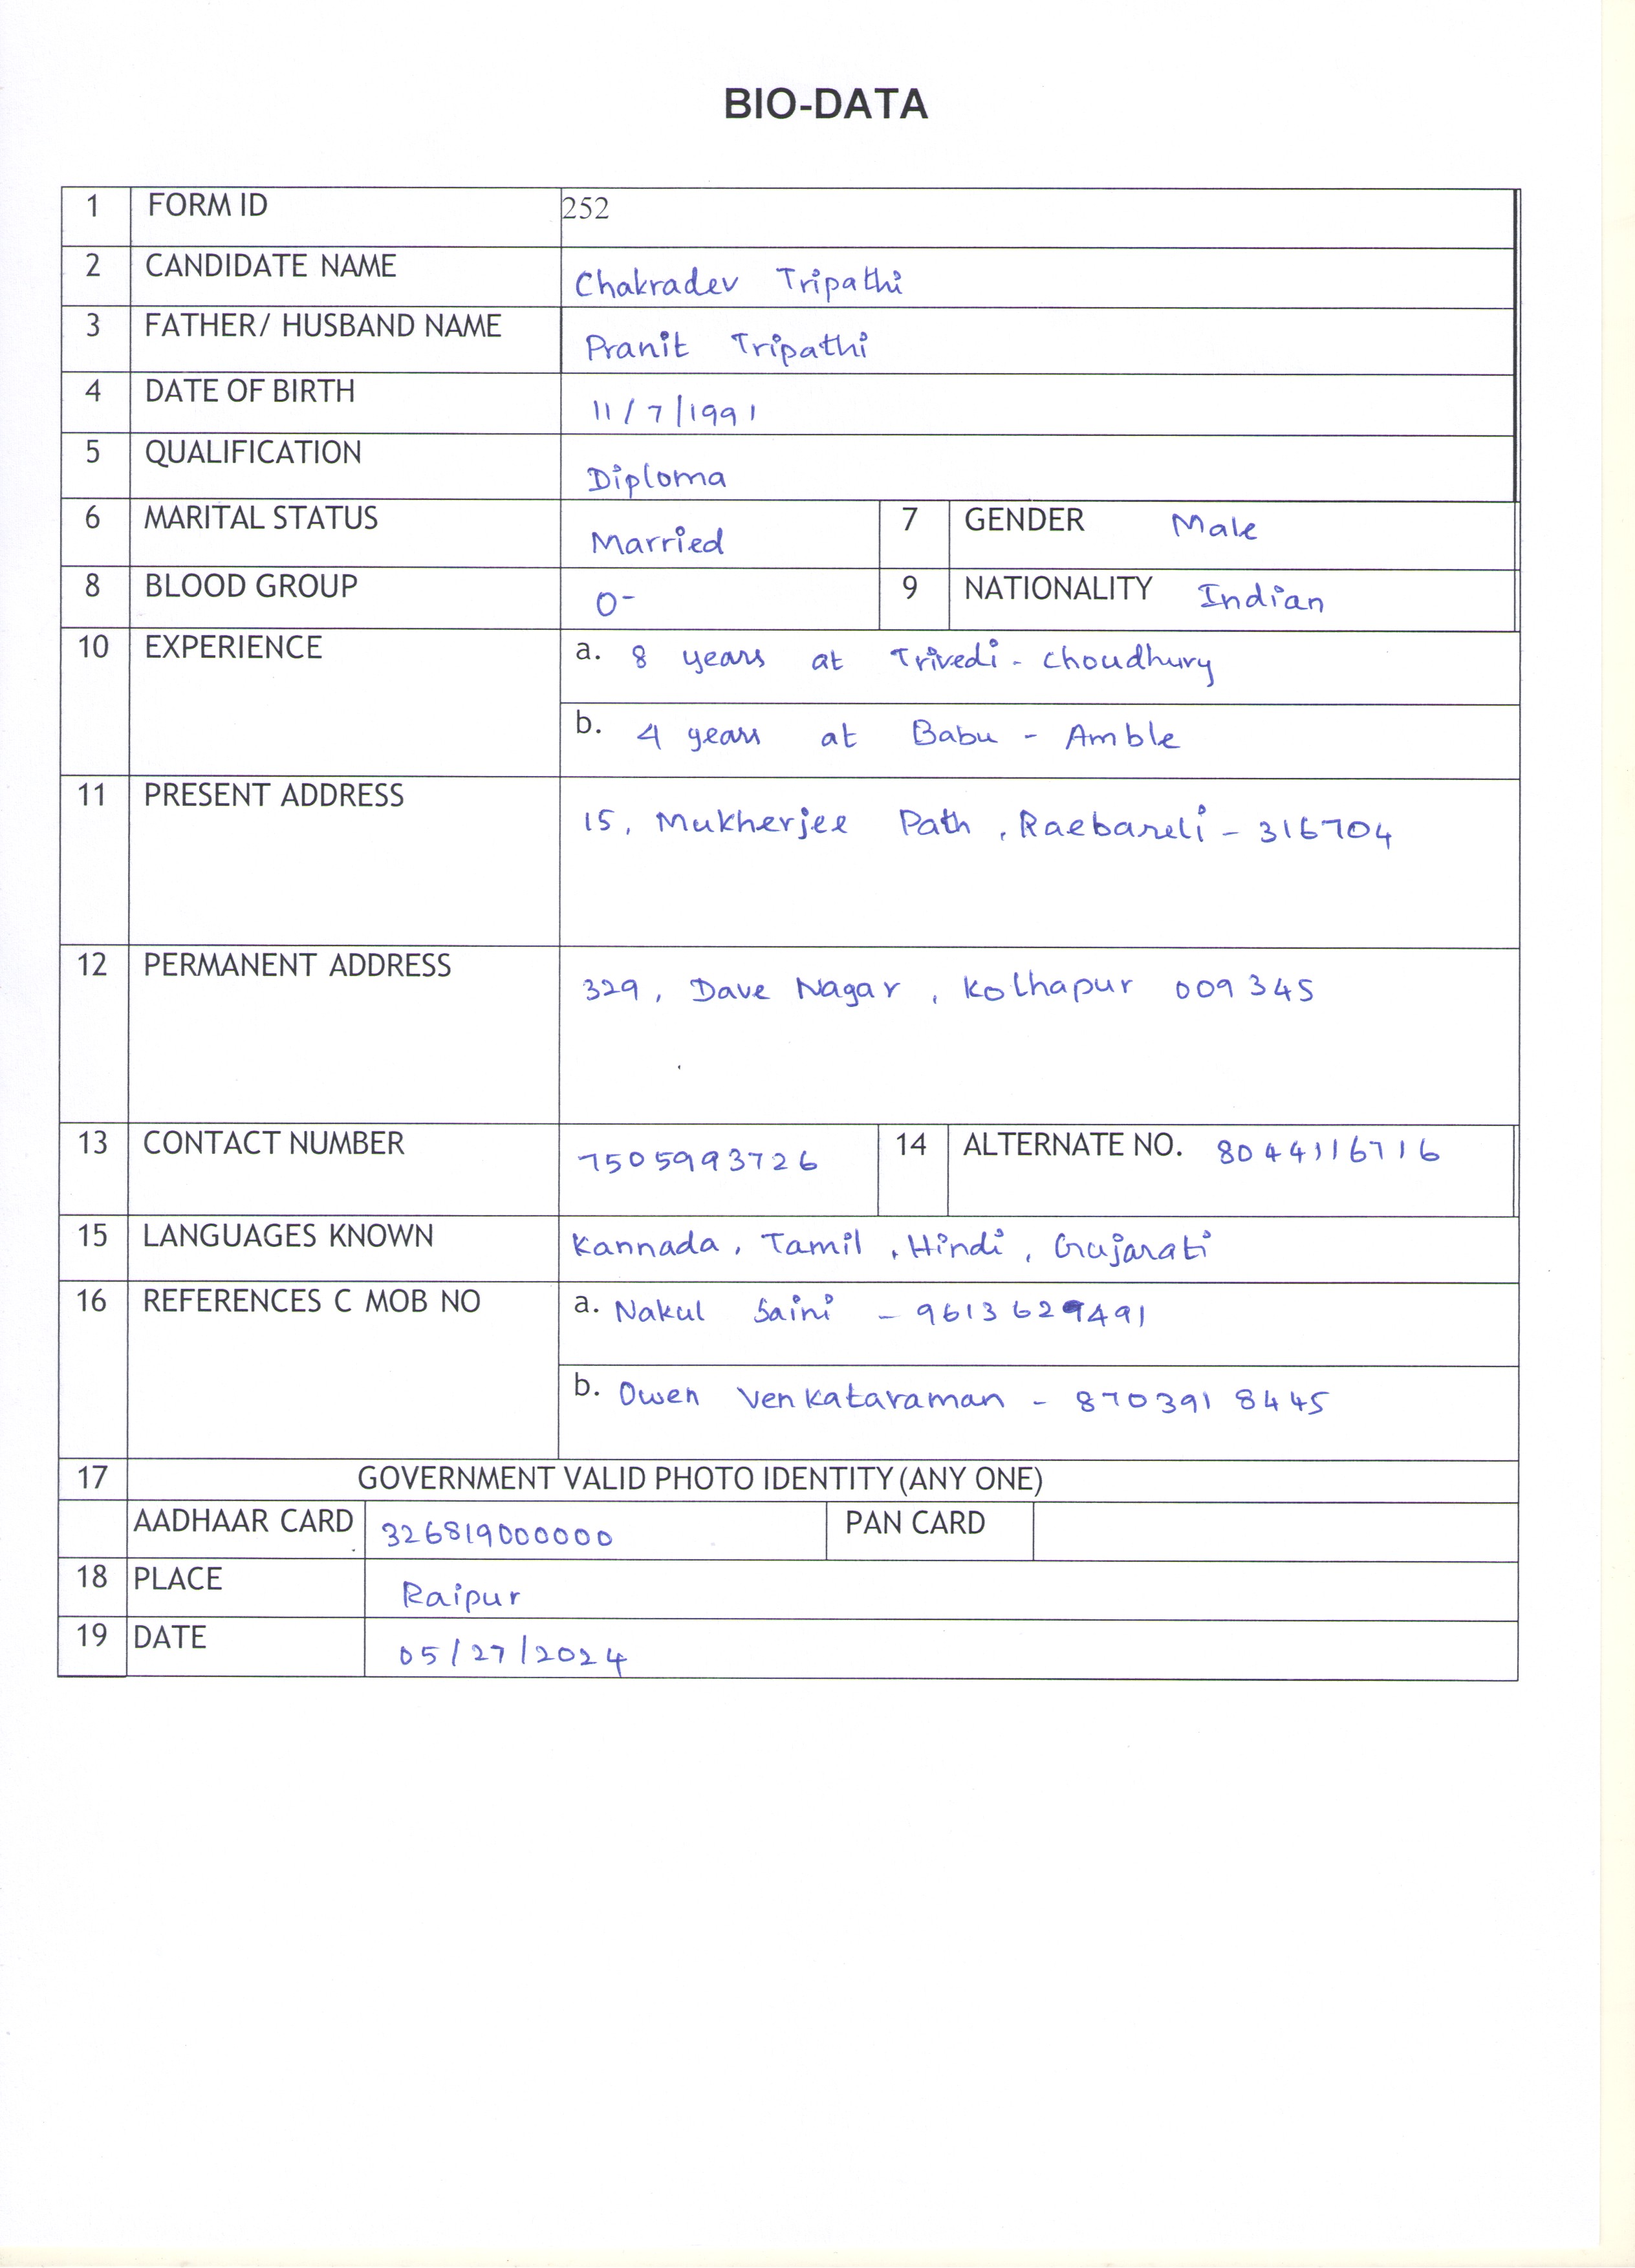 BIO-DATA
1 FORM ID 252
2 CANDIDATE NAME Chakradev Tripathi
3 FATHER/ HUSBAND NAME Pranit Tripathi
4 DATE OF BIRTH 11/7/1991
5 QUALIFICATION Diploma
6 MARITAL STATUS Married 7 GENDER Male
8 BLOOD GROUP O- 9 NATIONALITY Indian
10 EXPERIENCE a. 8 years at Trivedi - Choudhury
b. 4 years at Babu - Amble
11 PRESENT ADDRESS 15, Mukherjee Path, Raebareli - 316704
12 PERMANENT ADDRESS 329, Dave Nagar, Kolhapur 009345
13 CONTACT NUMBER 7505993726 14 ALTERNATE NO. 8044116716
15 LANGUAGES KNOWN Kannada, Tamil, Hindi, Gujarati
16 REFERENCES C MOB NO a. Nakul Saini - 9613629491
b. Owen Venkataraman - 8703918445
17 GOVERNMENT VALID PHOTO IDENTITY(ANY ONE)
AADHAAR CARD 326819000000 PAN CARD
18 PLACE Raipur
19 DATE 05/27/2024